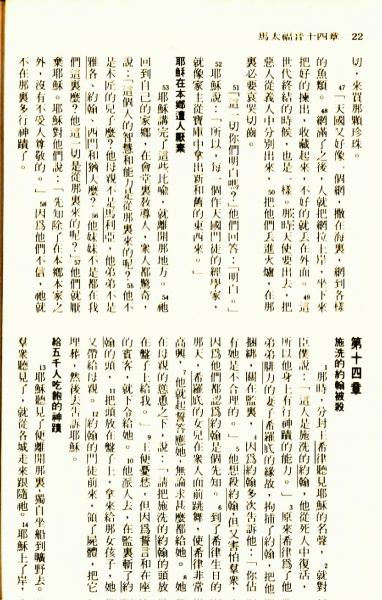 馬太福音十四章 22
切，來買那顆珍珠。
47「天國又好像一個網，撒在海裏，網到各樣
的魚類。48 網滿了之後，人就把網拉上岸，坐下來
把好的揀出，收藏起來，不好的就丟在外面。49 這
世代終結的時候，也是一樣。那時天使要出去，把
惡人從義人中分別出來，50 把他們丟進火爐，在那
裏必要哀哭切齒。
51「這一切你們明白嗎？」他們回答：「明白。」
52 耶穌說：「所以，每一個作天國門徒的經學家，
就像家主從他寶庫中拿出新和舊的東西來。」
耶穌在本鄉遭人厭棄
53 耶穌講完了這些比喻，就離開那地方。54 祂
回到自己的家鄉，在會堂裏教導人，衆人都驚奇，
說：「這個人的智慧和能力是從那裏來的呢？55 他不
是木匠的兒子麼？他母親不是馬利亞，他弟弟不是
雅各、約瑟、西門和猶大麼？56 他妹妹不是都在我
們這裏麼？他這一切是從那裏來的呢？」57 他們就厭
棄耶穌。耶穌對他們說：「先知除了在本鄉本家之
外，沒有不受人尊敬的。」58 因爲他們不信，祂就
不在那裏多行神蹟了。
第十四章
施洗的約翰被殺
1 那時，分封王希律聽見耶穌的名聲，2 就對
臣僕說：「這人是施洗的約翰，他從死人中復活，
所以他身上有行神蹟的能力。」3 原來希律爲了他
弟弟腓力的妻子希羅底的緣故，拘捕了約翰，把他
捆綁，關在監裏，4 因爲約翰多次告訴他：「你佔
有她是不合理的。」5 他想殺約翰，但又害怕羣衆，
因爲他們都認爲約翰是個先知。6 到了希律生日的
那天，希羅底的女兒在衆人面前跳舞，使希律非常
高興，7 他就起誓答應她，無論求甚麼都給她。8 她
在母親的慫恿之下，說：「請把施洗的約翰的頭放
在盤子上給我。」9 王便憂愁，但因爲誓言和在座
的賓客，就下令給她。10 他派人去，在監裏斬了約
翰的頭，11 把頭放在盤子上，拿來給那女孩子，她
又帶給母親。12 約翰的門徒前來，領了屍體，把它
埋葬，然後去告訴耶穌。
給五千人吃飽的神蹟
13 耶穌聽見了，便離開那裏，獨自坐船到曠野去。
羣衆聽見了，就從各城走來跟隨祂。14 耶穌上了岸，